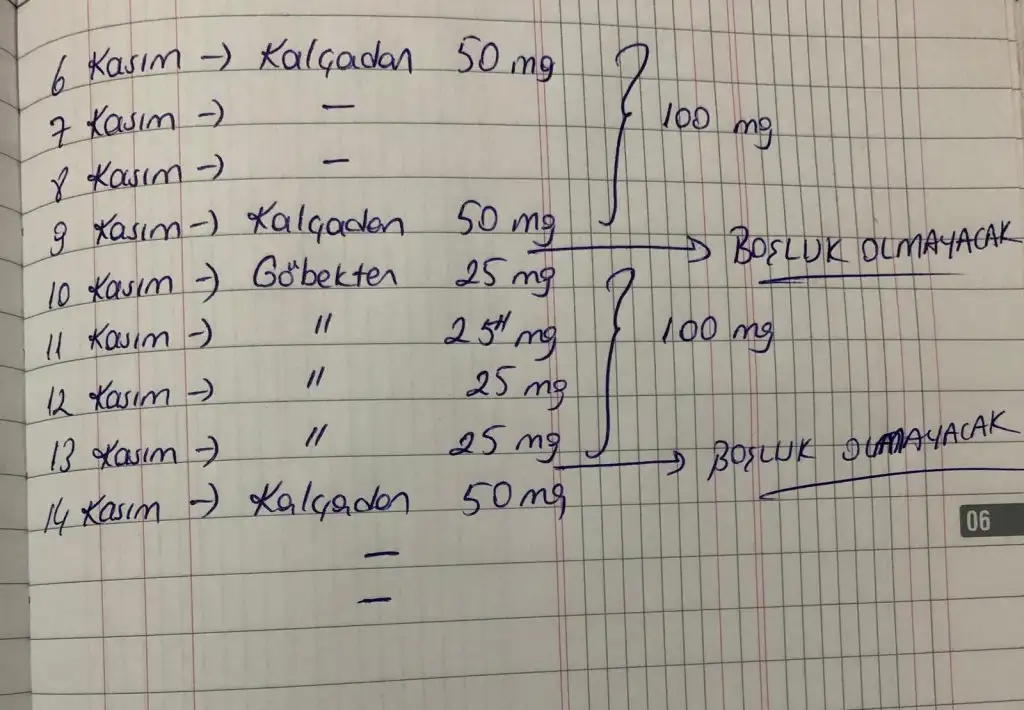 6 Kasım → Kalçadan 50 mg
7 Kasım → —
100 mg
8 Kasım → —
9 Kasım → Kalçadan 50 mg → BOŞLUK OLMAYACAK
10 Kasım → Göbekten 25 mg
11 Kasım → " 25 mg
100 mg
12 Kasım → " 25 mg
13 Kasım → " 25 mg → BOŞLUK OLMAYACAK
14 Kasım → Kalçadan 50 mg
—
—
06